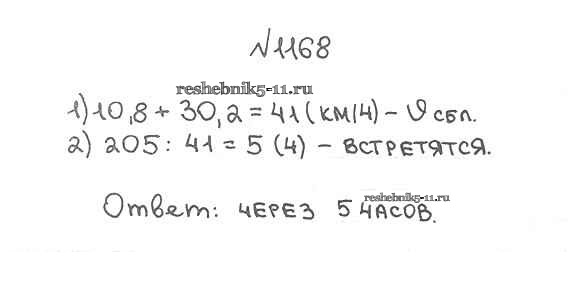 №1168
reshebnik5-11.ru
1) 10,8 + 30,2 = 41 (км/ч) – υ сбл.
2) 205 : 41 = 5 (ч) – встретятся.
reshebnik5-11.ru
Ответ: через 5 часов.